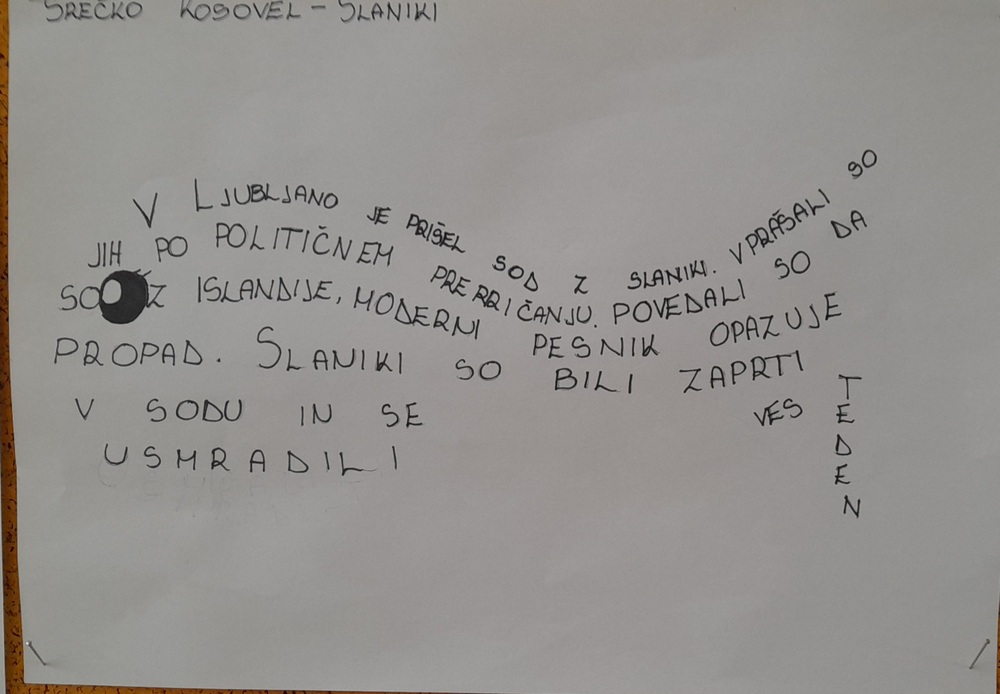 SREČKO KOSOVEL - SLANIKI
V LJUBLJANO JE PRIŠEL SOD Z SLANIKI. VPRAŠALI SO
JIH PO POLITIČNEM PREPRIČANJU. POVEDALI SO DA
SO Z ISLANDIJE, MODERNI PESNIK OPAZUJE
PROPAD. SLANIKI SO BILI ZAPRTI
V SODU IN SE VES TEDEN
USMRADILI